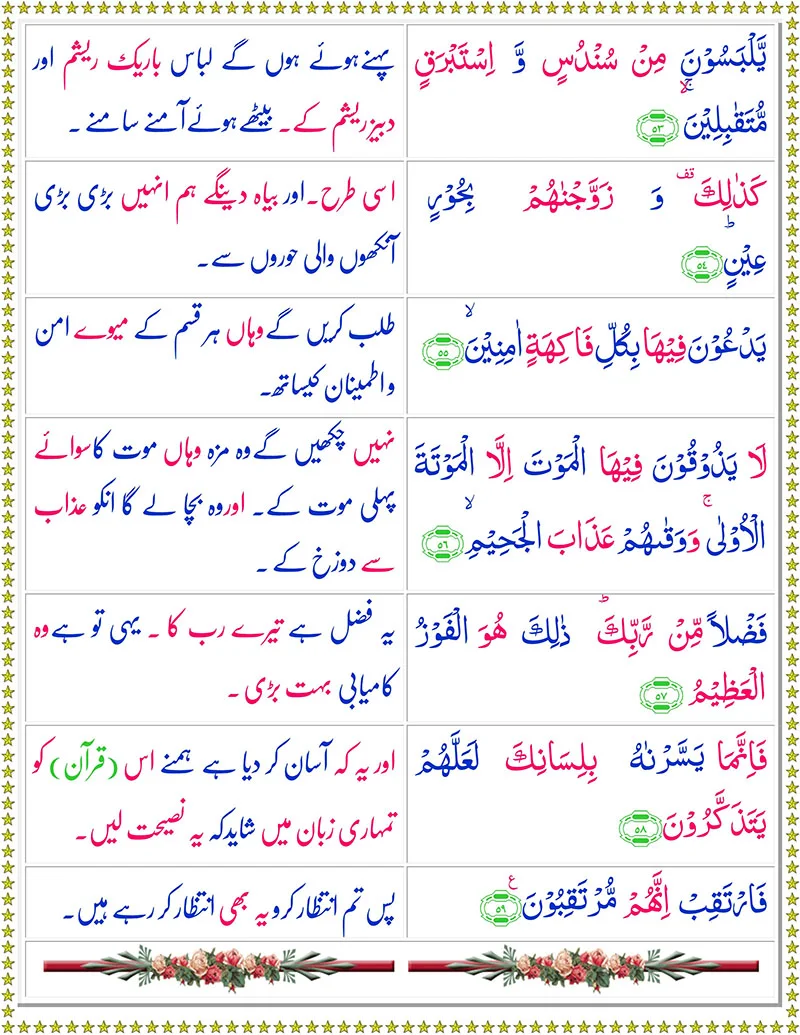 يَّلْبَسُوْنَ مِنْ سُنْدُسٍ وَّ اِسْتَبْرَقٍ
مُّتَقٰبِلِيْنَ ۚۙ ٥٣
پہنے ہوئے ہوں گے لباس باریک ریشم اور
دبیز ریشم کے۔ بیٹھے ہوئے آمنے سامنے ۔
كَذٰلِكَ ۫ وَ زَوَّجْنٰهُمْ بِحُوْرٍ
عِيْنٍ ؕ ٥٤
اسی طرح۔ اور بیاہ دینگے ہم انہیں بڑی بڑی
آنکھوں والی حوروں سے۔
يَدْعُوْنَ فِيْهَا بِكُلِّ فَاكِهَةٍ اٰمِنِيْنَ ۙ ٥٥
طلب کریں گے وہاں ہر قسم کے میوے امن
و اطمینان کیساتھ۔
لَا يَذُوْقُوْنَ فِيْهَا الْمَوْتَ اِلَّا الْمَوْتَةَ
الْاُوْلٰى ۚ وَوَقٰىهُمْ عَذَابَ الْجَحِيْمِ ۙ ٥٦
نہیں چکھیں گے وہ مزہ وہاں موت کا سوائے
پہلی موت کے۔ اور وہ بچا لے گا انکو عذاب
سے دوزخ کے ۔
فَضْلًا مِّنْ رَّبِّكَ ؕ ذٰلِكَ هُوَ الْفَوْزُ
الْعَظِيْمُ ٥٧
یہ فضل ہے تیرے رب کا ۔ یہی تو ہے وہ
کامیابی بہت بڑی ۔
فَاِنَّمَا يَسَّرْنٰهُ بِلِسَانِكَ لَعَلَّهُمْ
يَتَذَكَّرُوْنَ ٥٨
اور یہ کہ آسان کر دیا ہے ہمنے اس (قرآن) کو
تمہاری زبان میں شاید کہ یہ نصیحت لیں۔
فَارْتَقِبْ اِنَّهُمْ مُّرْتَقِبُوْنَ ع ٥٩
پس تم انتظار کرو یہ بھی انتظار کر رہے ہیں۔